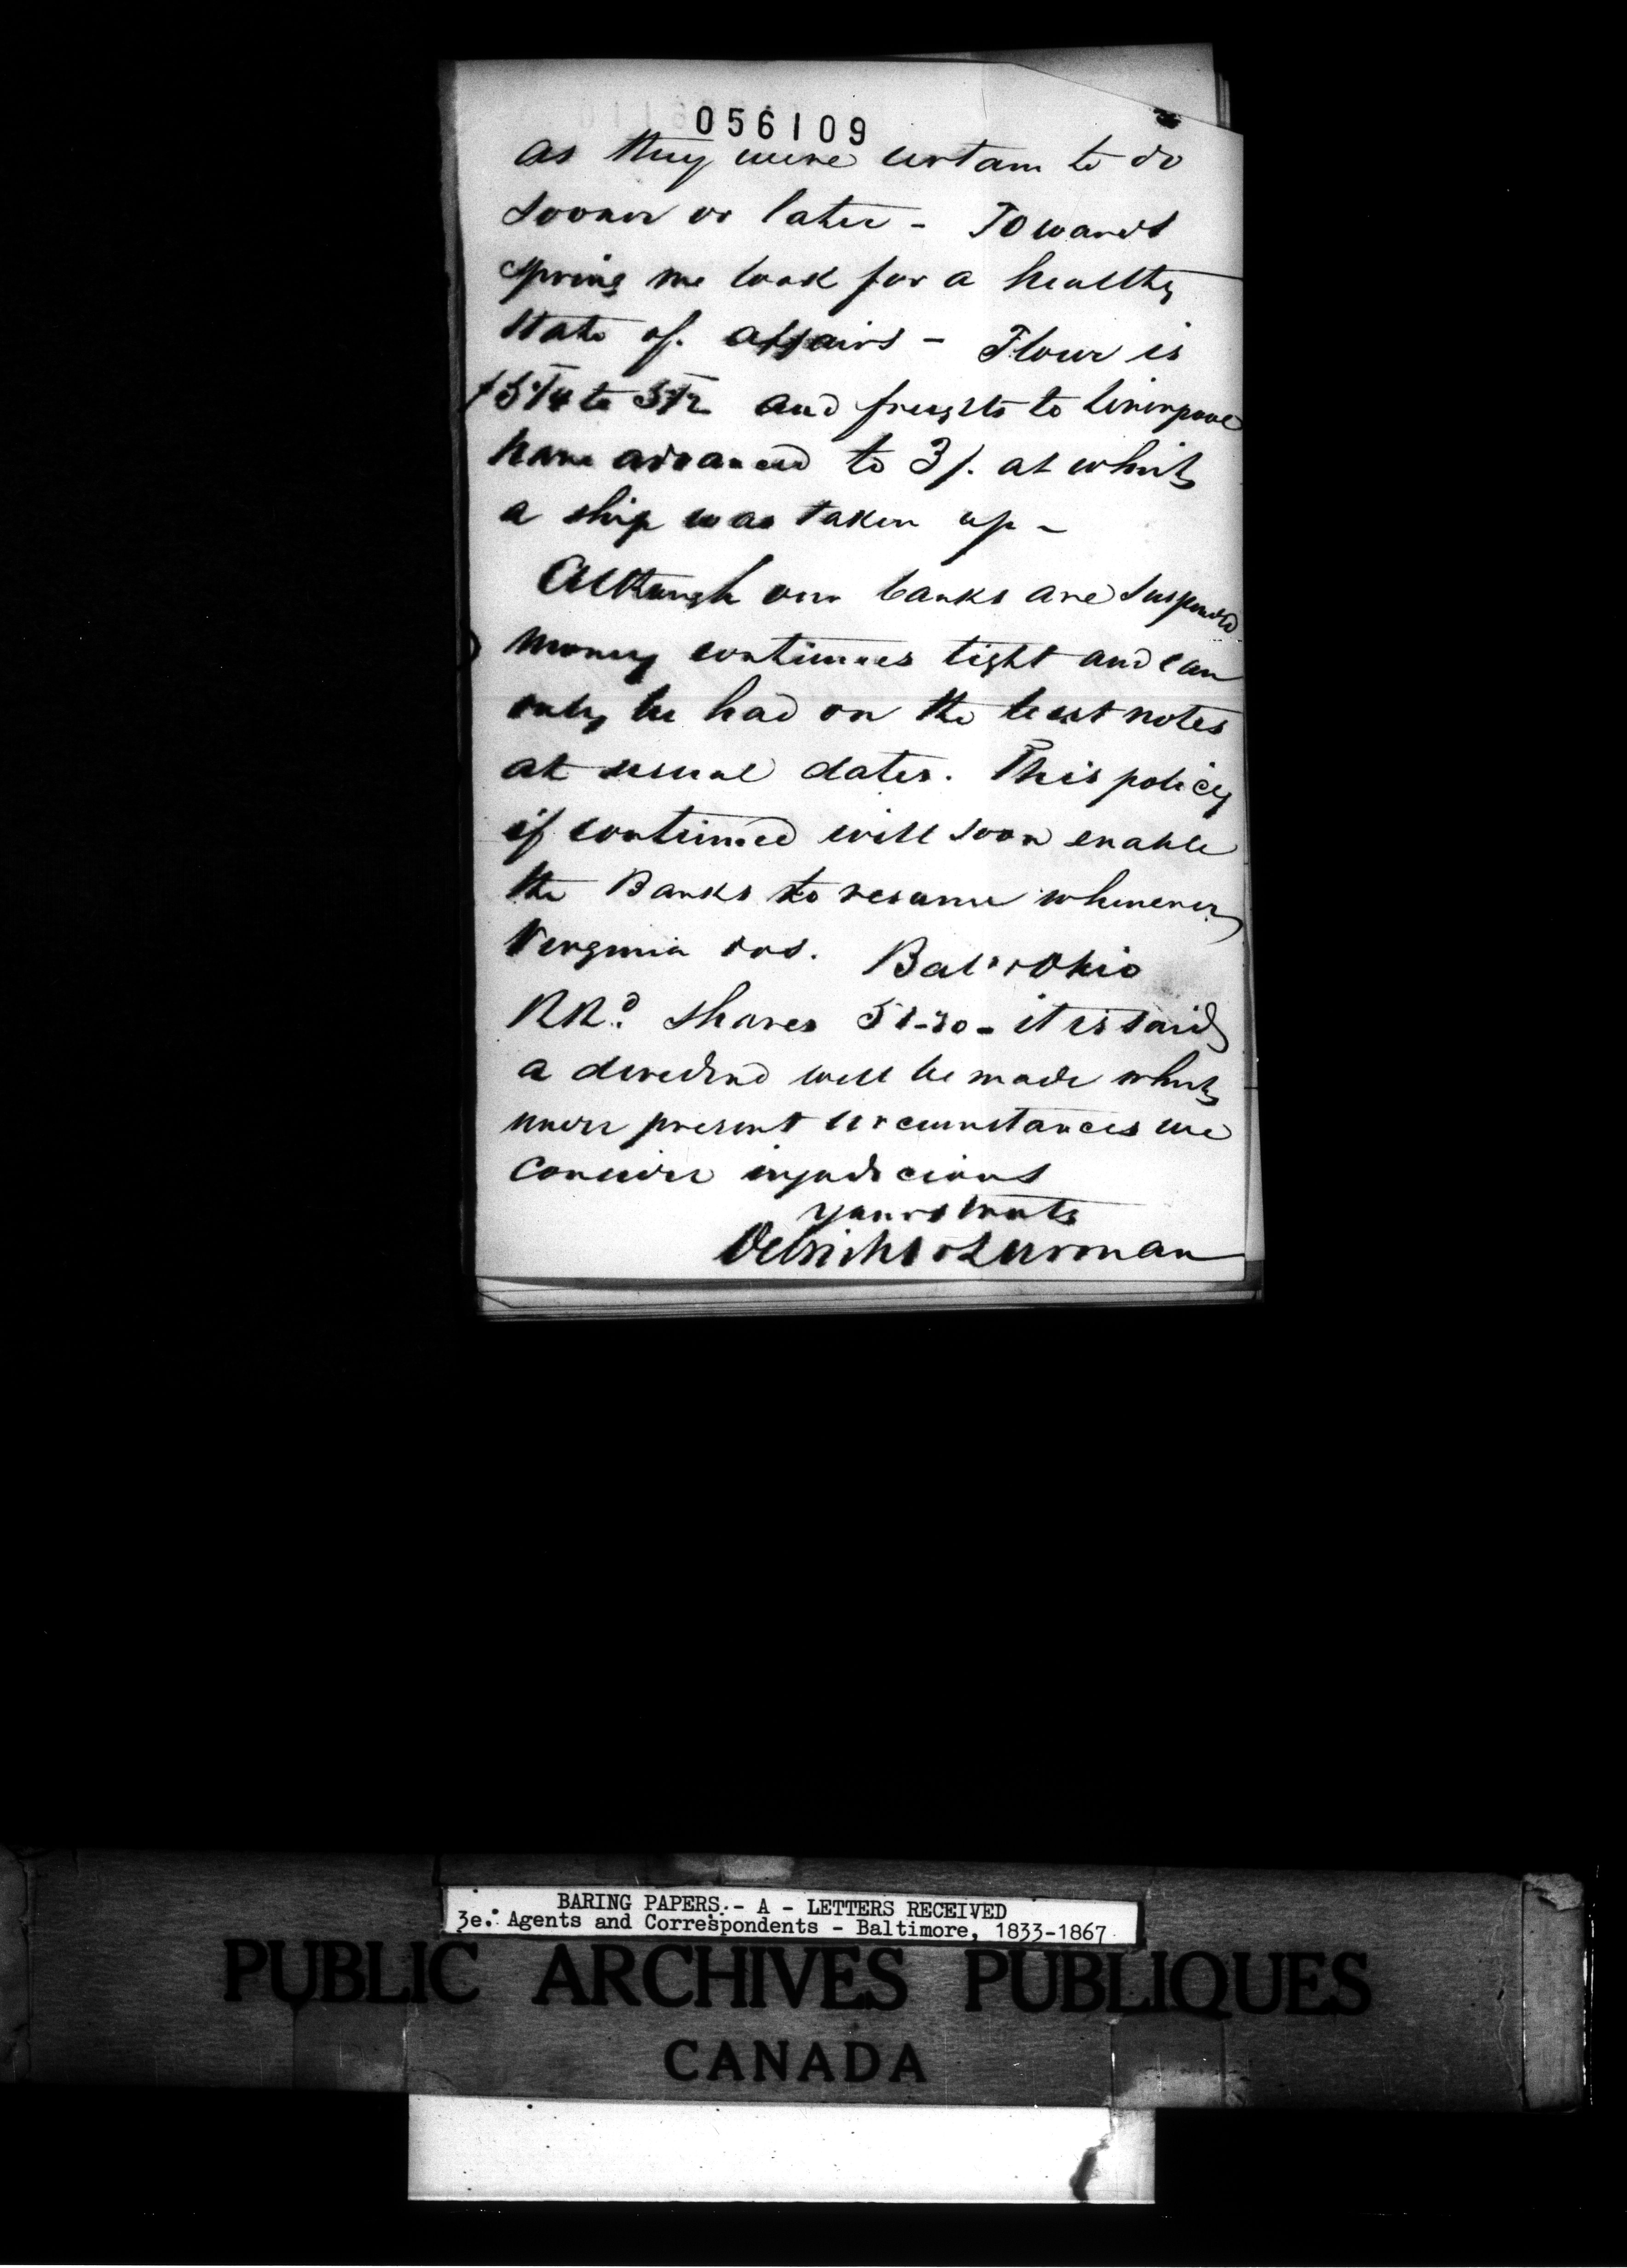 056109
as they were certain to do
sooner or later - Towards
spring we look for a healthy
state of affairs - Flour is
$5 1/4 to 5 1/2 and freights to Liverpool
have advanced to 3/. at which
a ship was taken up -
Although our banks are suspended
money continues tight and can
only be had on the best notes
at usual dates. This policy
if continued will soon enable
the Banks to resume whenever
Virginia does. Balt & Ohio
RRd. shares 51-50 - it is said
a dividend will be made which
under present circumstances we
consider injudicious
yours truly
Oelrichs & Lurman
BARING PAPERS - A - LETTERS RECEIVED
3e. Agents and Correspondents - Baltimore, 1833-1867
PUBLIC ARCHIVES PUBLIQUES
CANADA